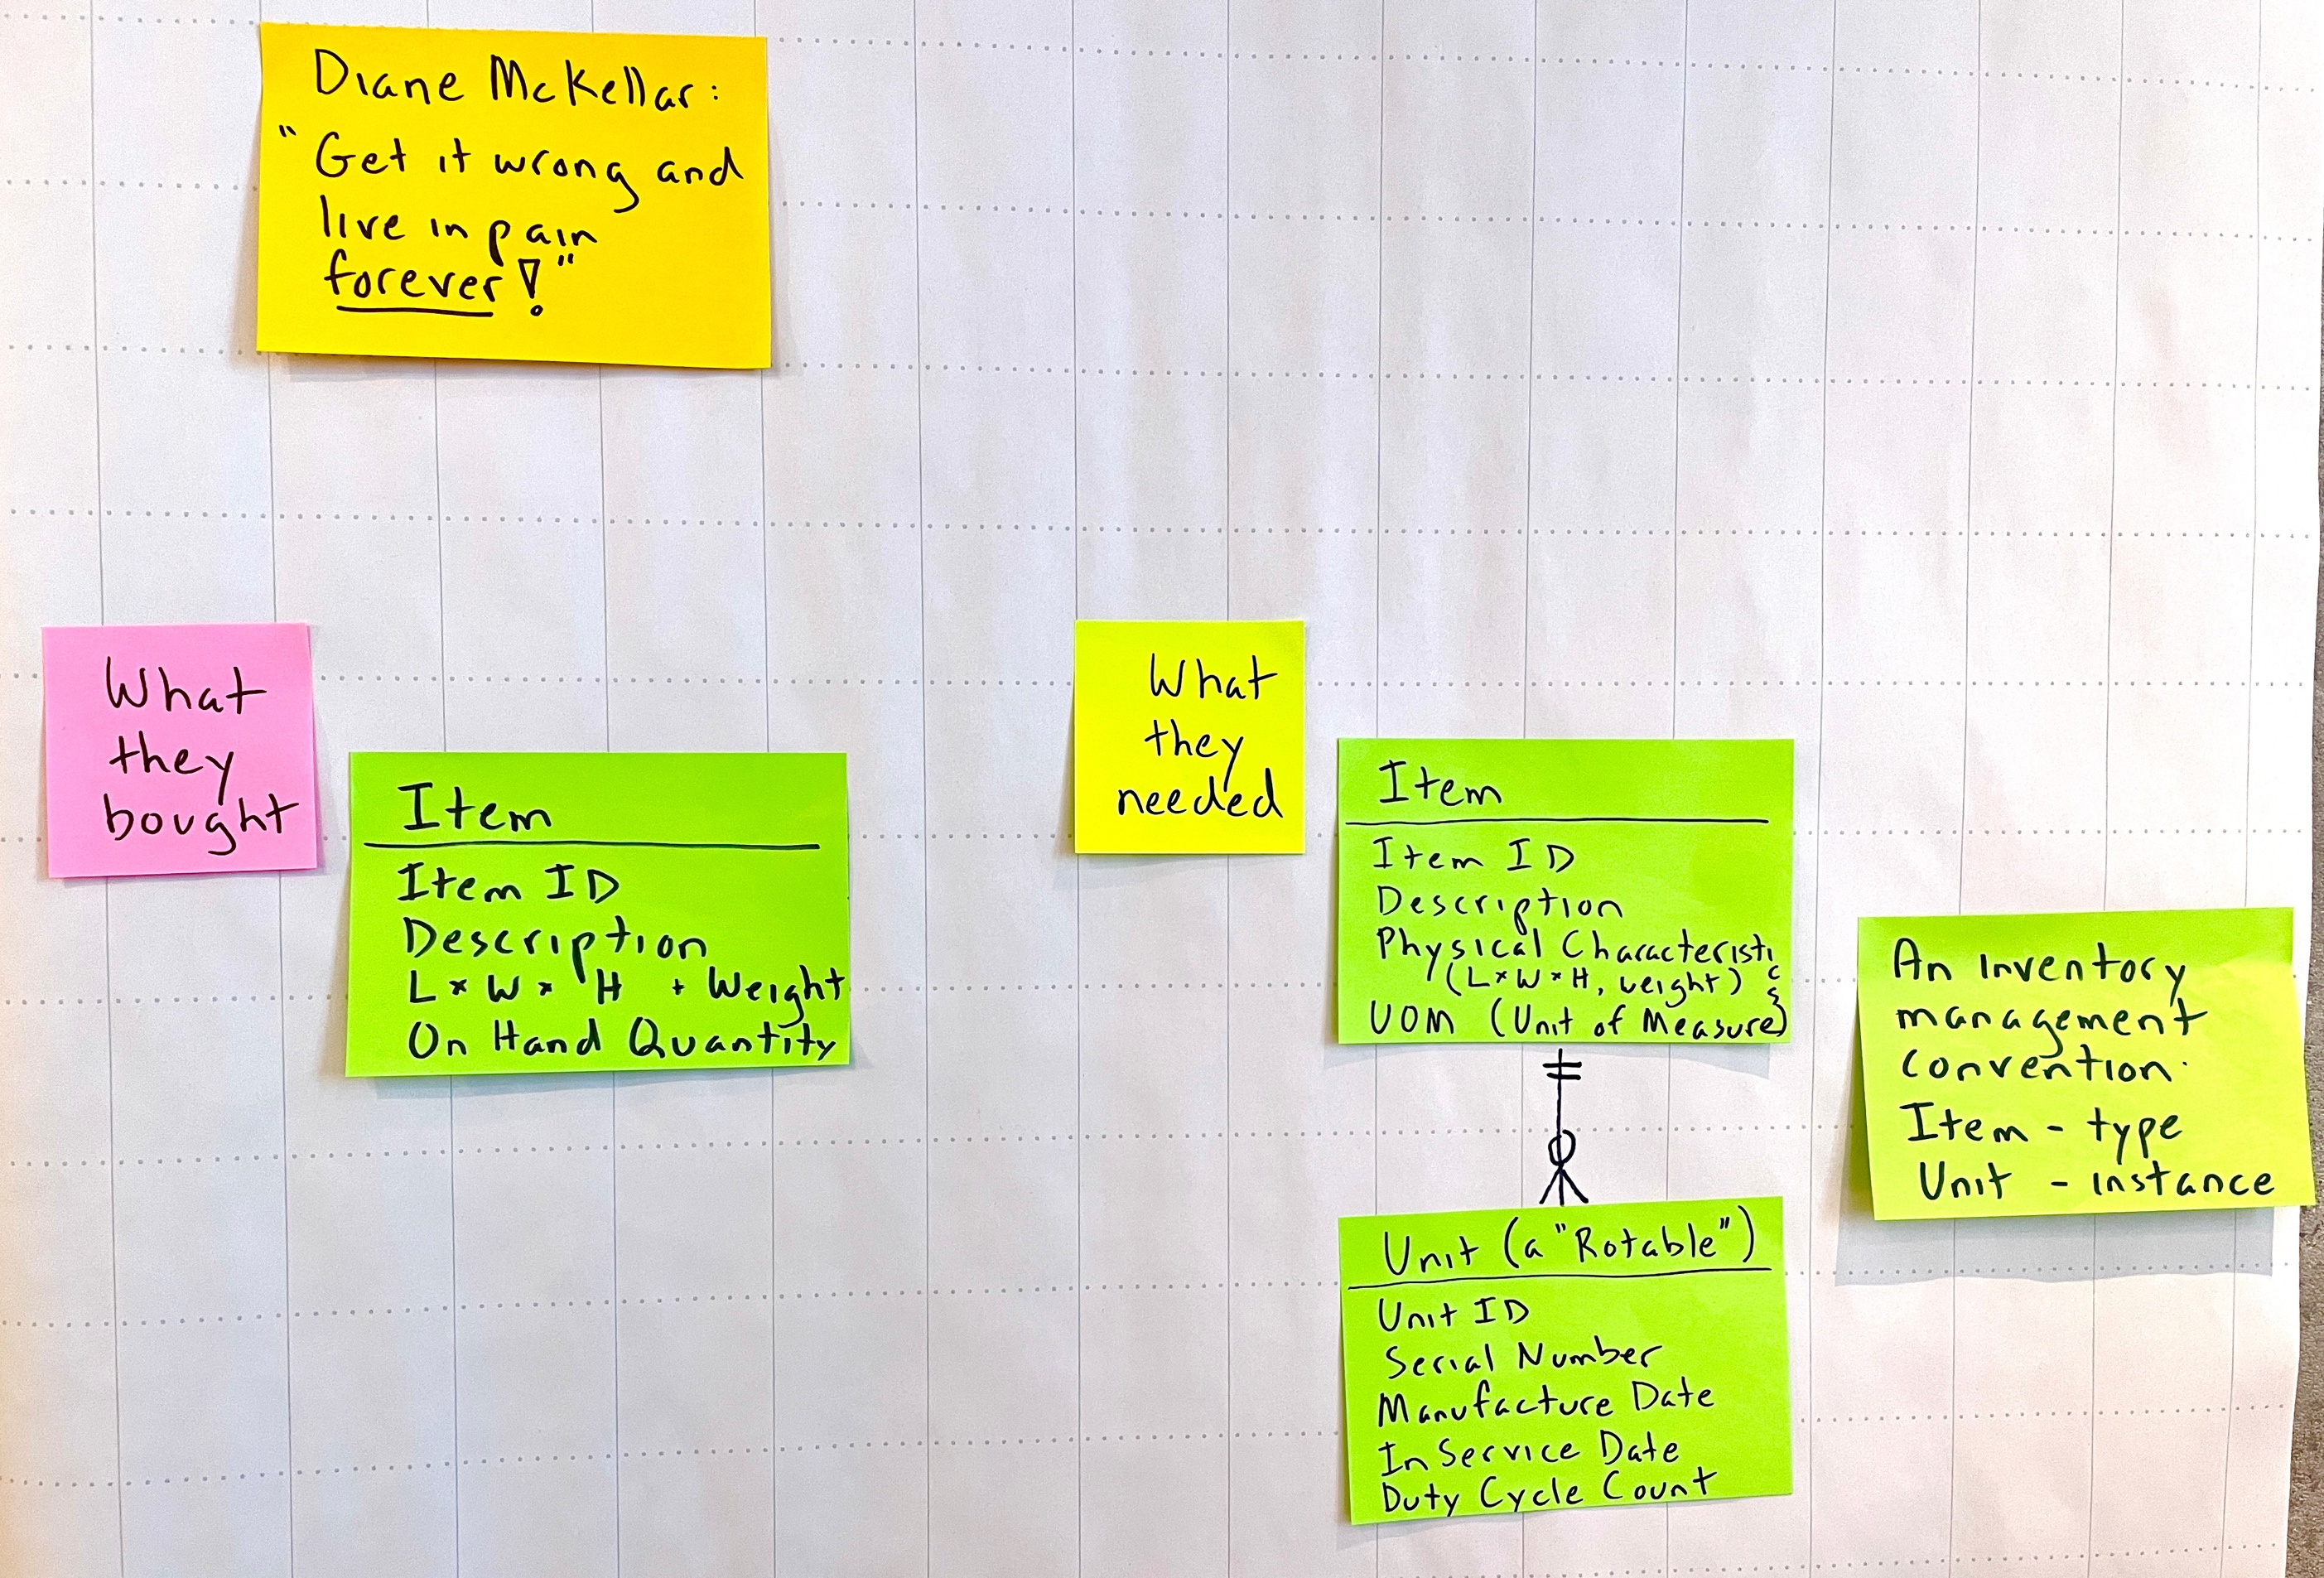 Diane McKellar:
"Get it wrong and
live in pain
forever!"
What
they
bought
Item
Item ID
Description
L x W x H + Weight
On Hand Quantity
What
they
needed
Item
Item ID
Description
Physical Characteristics
(L x W x H, weight)
UOM (Unit of Measure)
Unit (a "Rotable")
Unit ID
Serial Number
Manufacture Date
In Service Date
Duty Cycle Count
An inventory
management
convention:
Item - type
Unit - instance